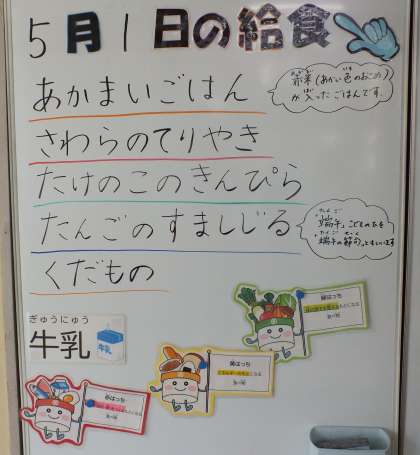 5月1日の給食
あかまいごはん
赤米(あかい色のおこめ)
が入ったごはんです。
さわらのてりやき
たけのこのきんぴら
たんごのすましじる
たんご
"端午"こどもの日を
"端午の節句"ともいいます
くだもの
ぎゅうにゅう
牛乳
牛乳
緑はっち
黄はっち
赤はっち